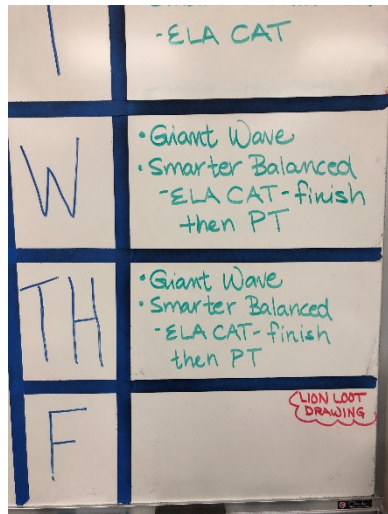 T
-ELA CAT
W
• Giant Wave
• Smarter Balanced
-ELA CAT-finish
then PT
TH
• Giant Wave
• Smarter Balanced
-ELA CAT-finish
then PT
F
LION LOOT
DRAWING